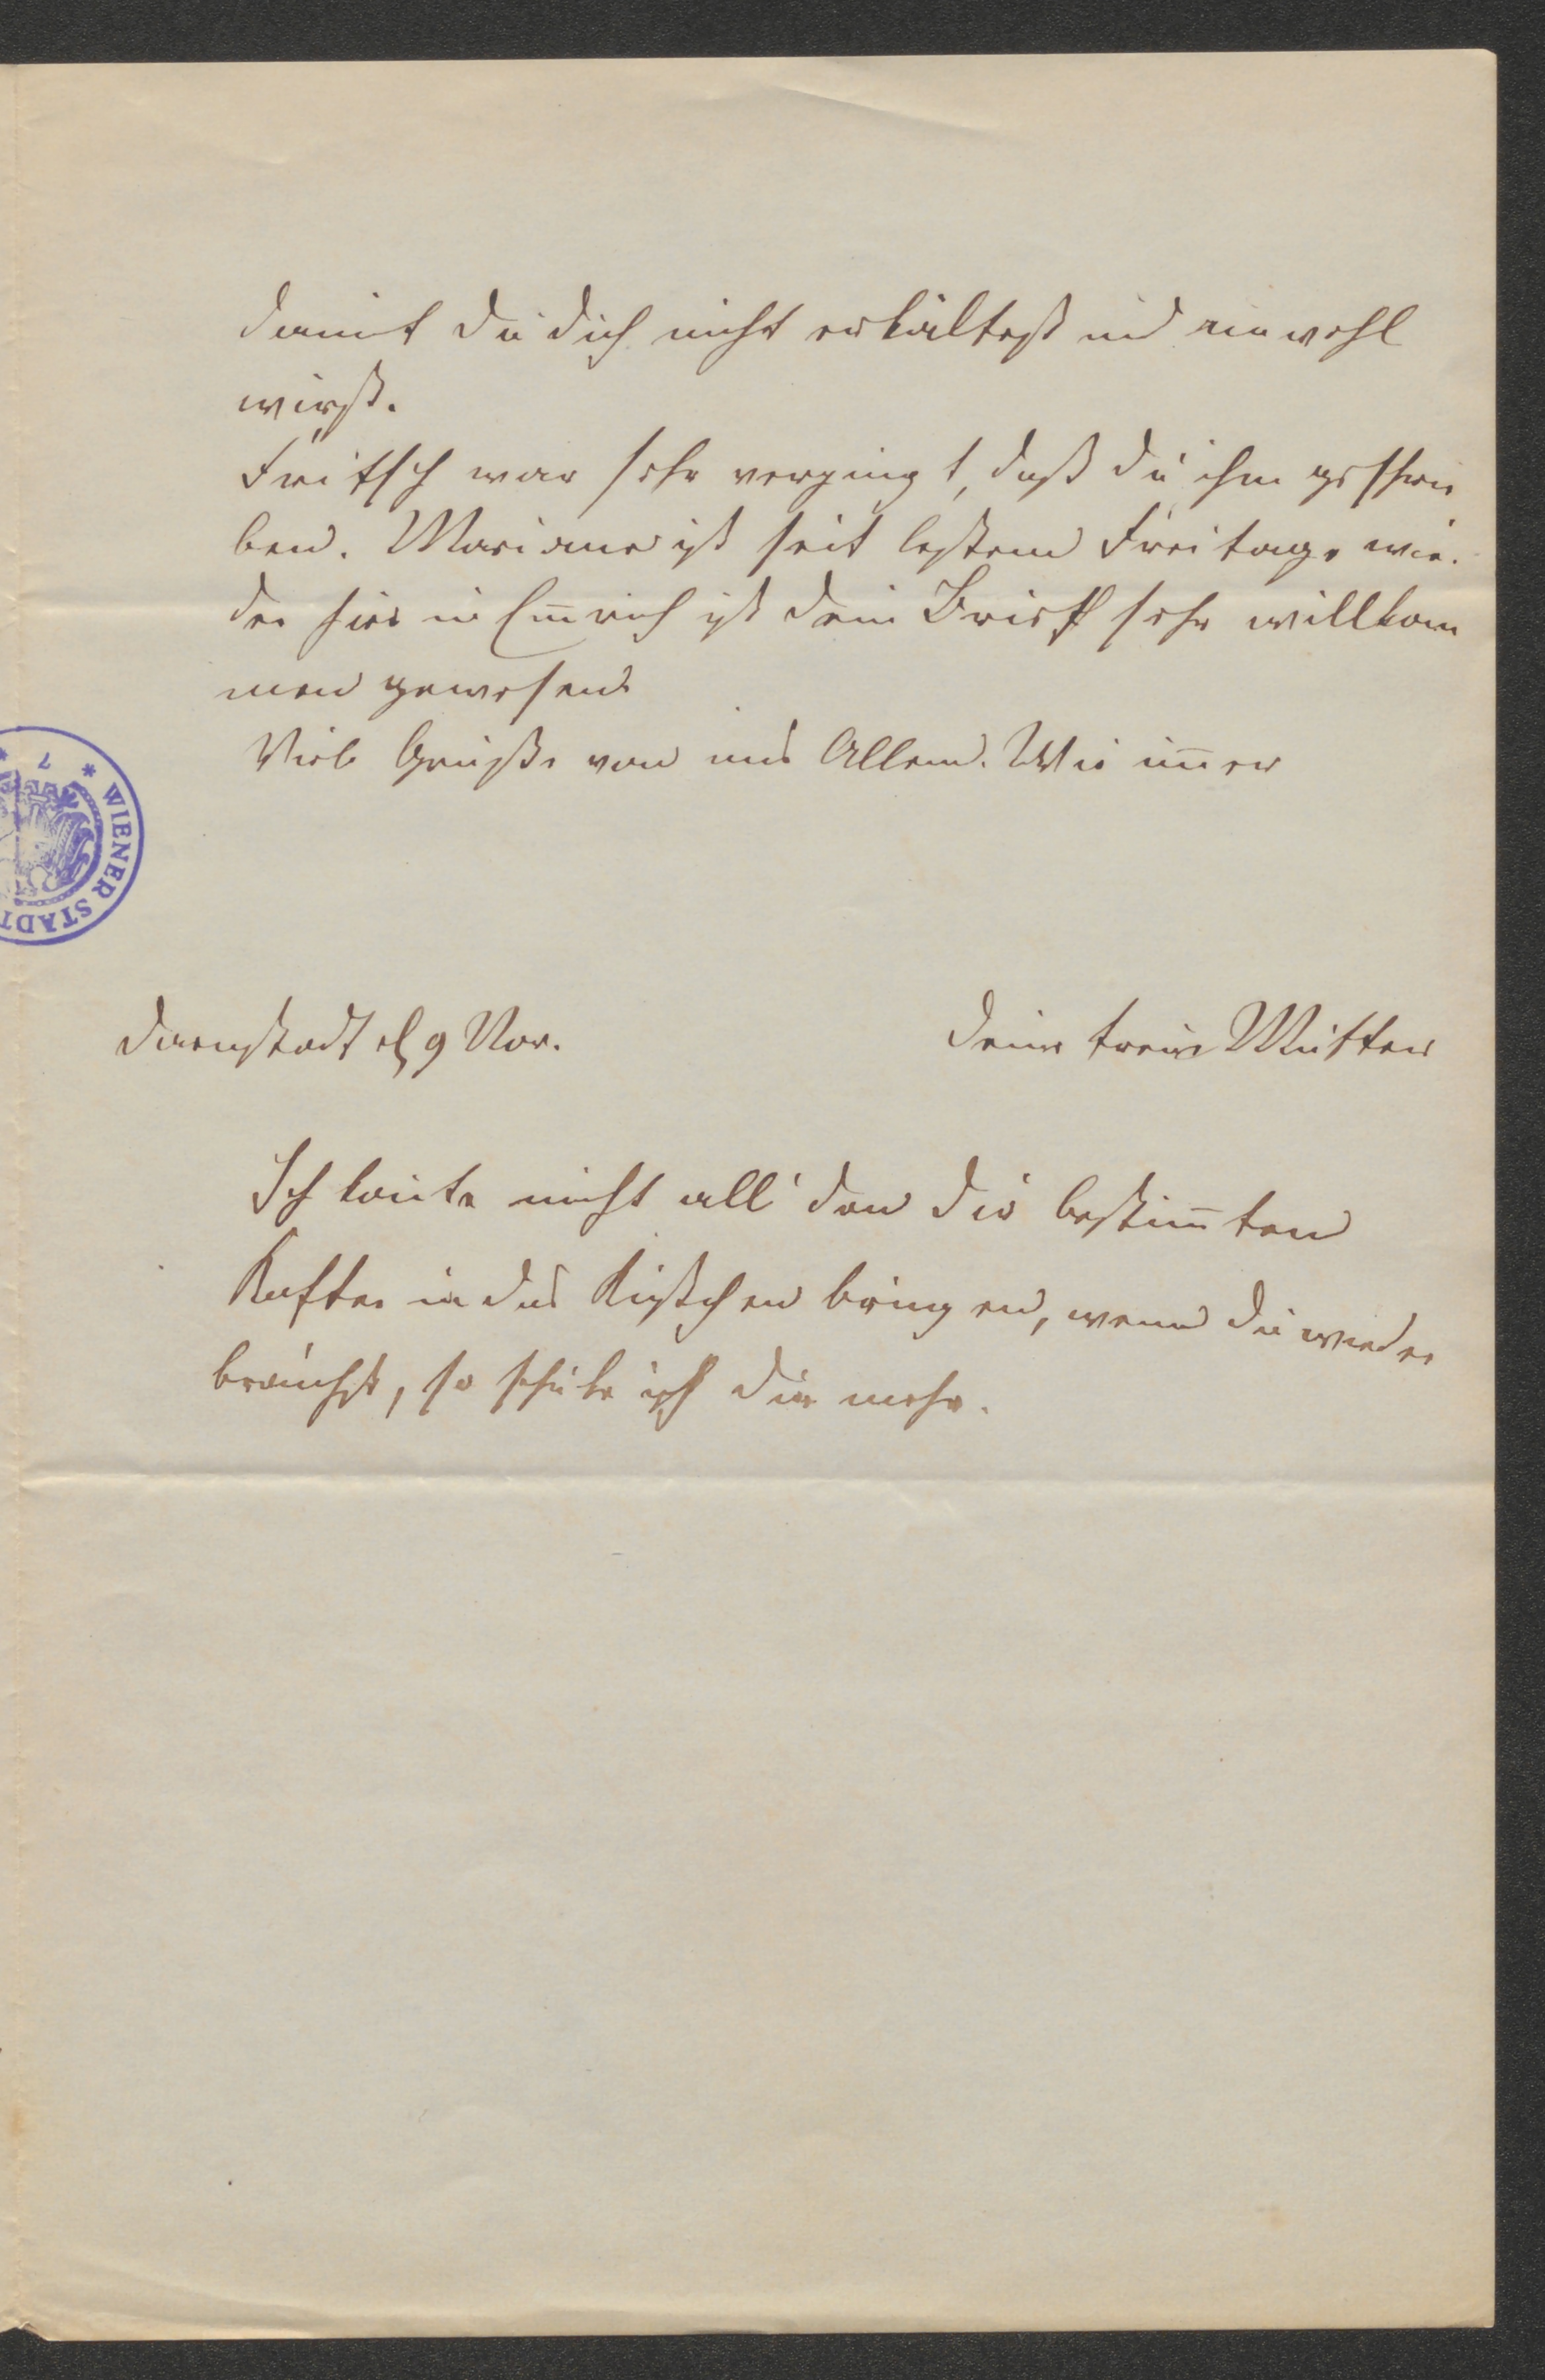 damit du dich nicht erkältest und unwohl
wirst.
Fritsch war sehr vergnügt, daß du ihm geschrie
ben. Mariane ist seit lestem Freitage wie.
der hier in Em̄rich ist dein Brief sehr willkom
men gewesen.
Viele Grüße von uns Allen. Wie im̄er
WIENER STADT
7
Darmstadt d 9 Nov.
Deine treue Mutter
Ich konnte nicht all' den dir bestim̄ten
Kaffee in das Kistchen bringen, wenn du wieder
brauchst, so schicke ich dir mehr.